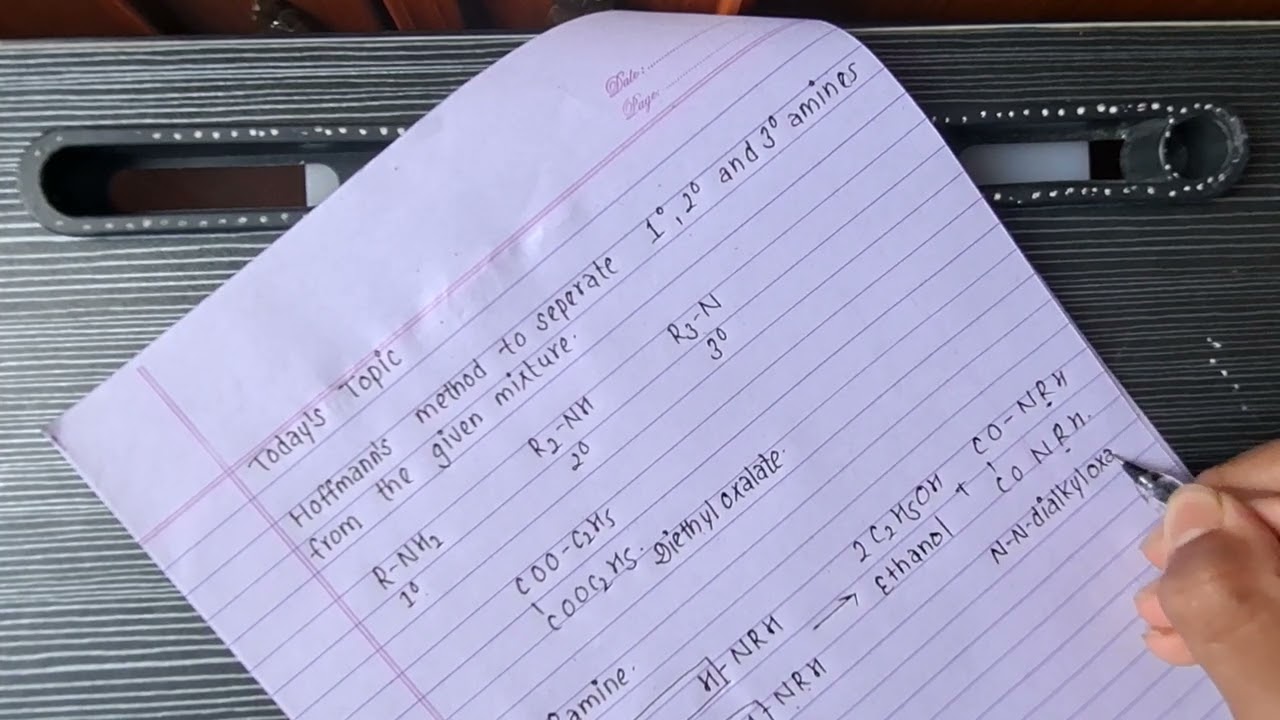 Date:
Page:
Today's Topic
Hoffmann's method to seperate 1°, 2° and 3° amines
from the given mixture.
R-NH2 R2-NH R3-N
1° 2° 3°
COO-C2H5
COOC2H5. Diethyl oxalate.
amine.
H-NRH → 2C2H5OH + CO-NRH
NRH Ethanol CO NRH.
N-N-dialkyloxa